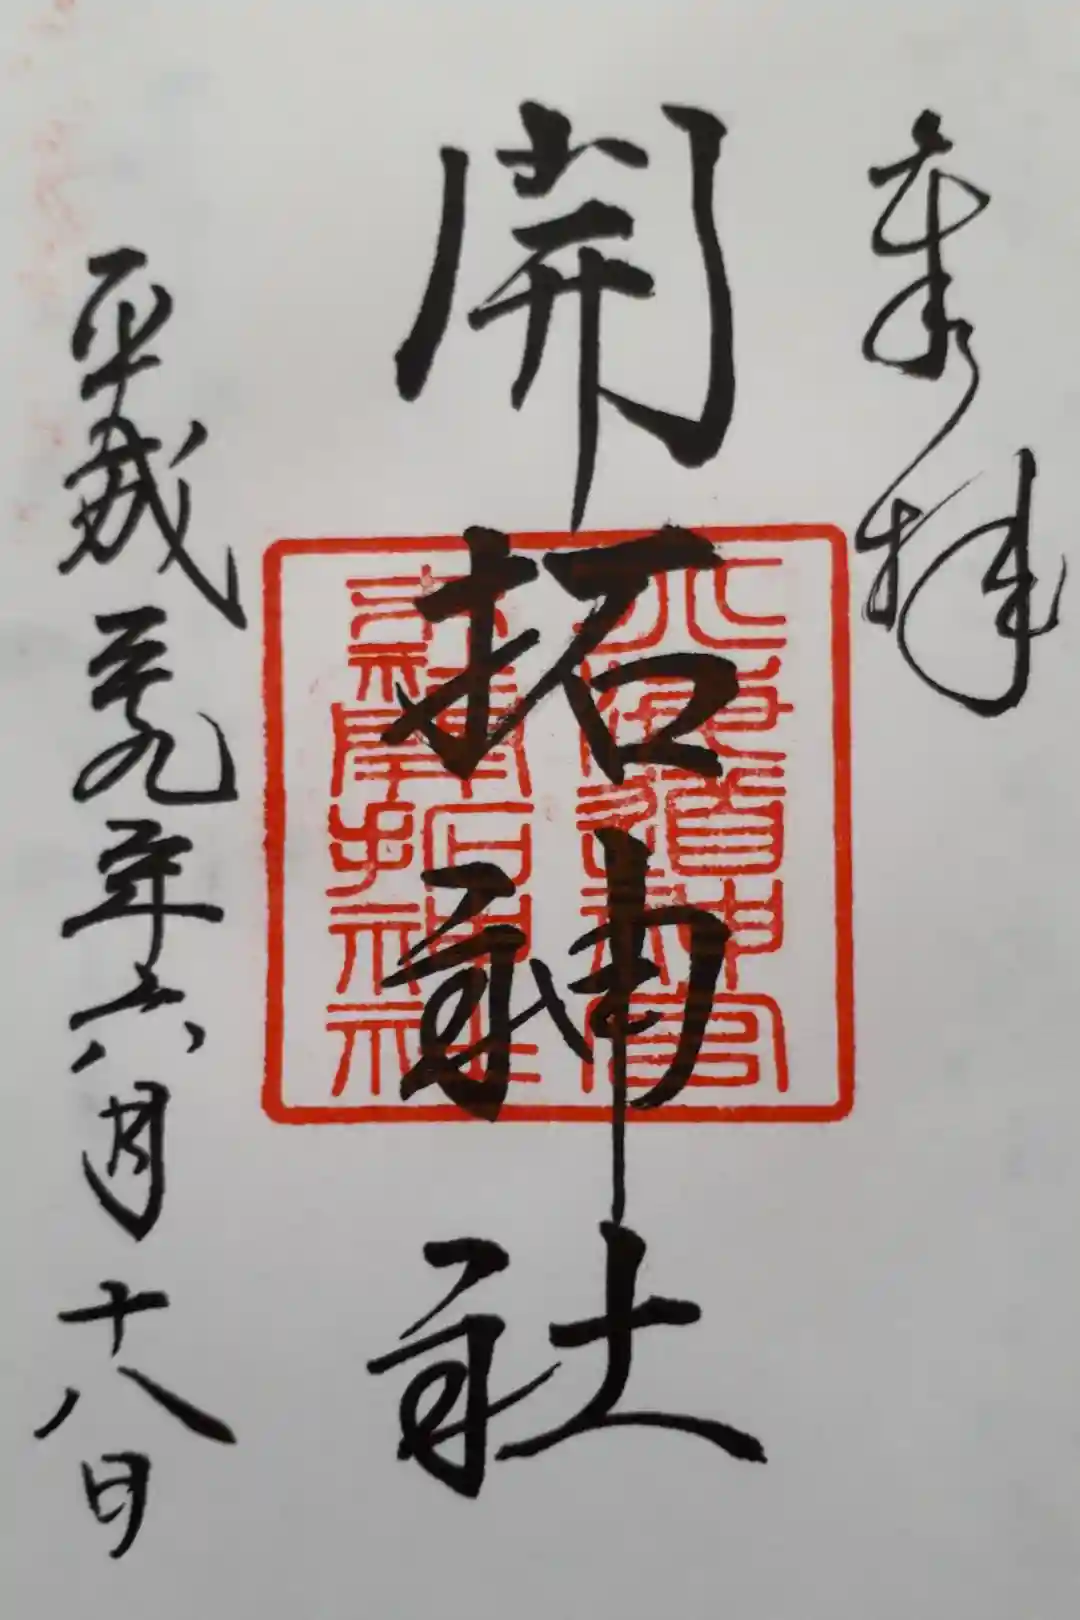 奉拝
開拓神社
北海道神宮
末社開拓神社
平成二十九年六月十八日